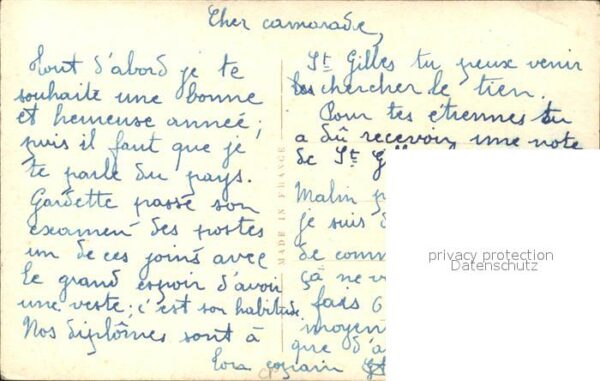 Cher camarade,
Tout d'abord je te
souhaite une bonne
et heureuse année;
puis il faut que je
te parle du pays.
Gardette passe son
examen des postes
un de ces joins avec
le grand espoir d'avoir
une veste; c'est son habitude.
Nos diplômes sont à
St Gilles tu peux venir
chercher le tien.
Pour tes étiennes tu
a dû recevoir une note
de St
Malin
je suis
de
ça ne
fais
moyen
que d'a
MADE IN FRANCE
privacy protection
Datenschutz